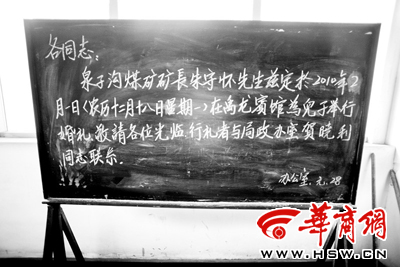 各同志:
泉子沟煤矿矿長朱守怀先生兹定於2010年2
月一日(农历十二月十八日星期一)在禹龙宾馆為兒子举行
婚礼敬請各位光临行礼者与局政办室贺晓利
同志联系.
办公室.元.28
華商網
WWW.HSW.CN